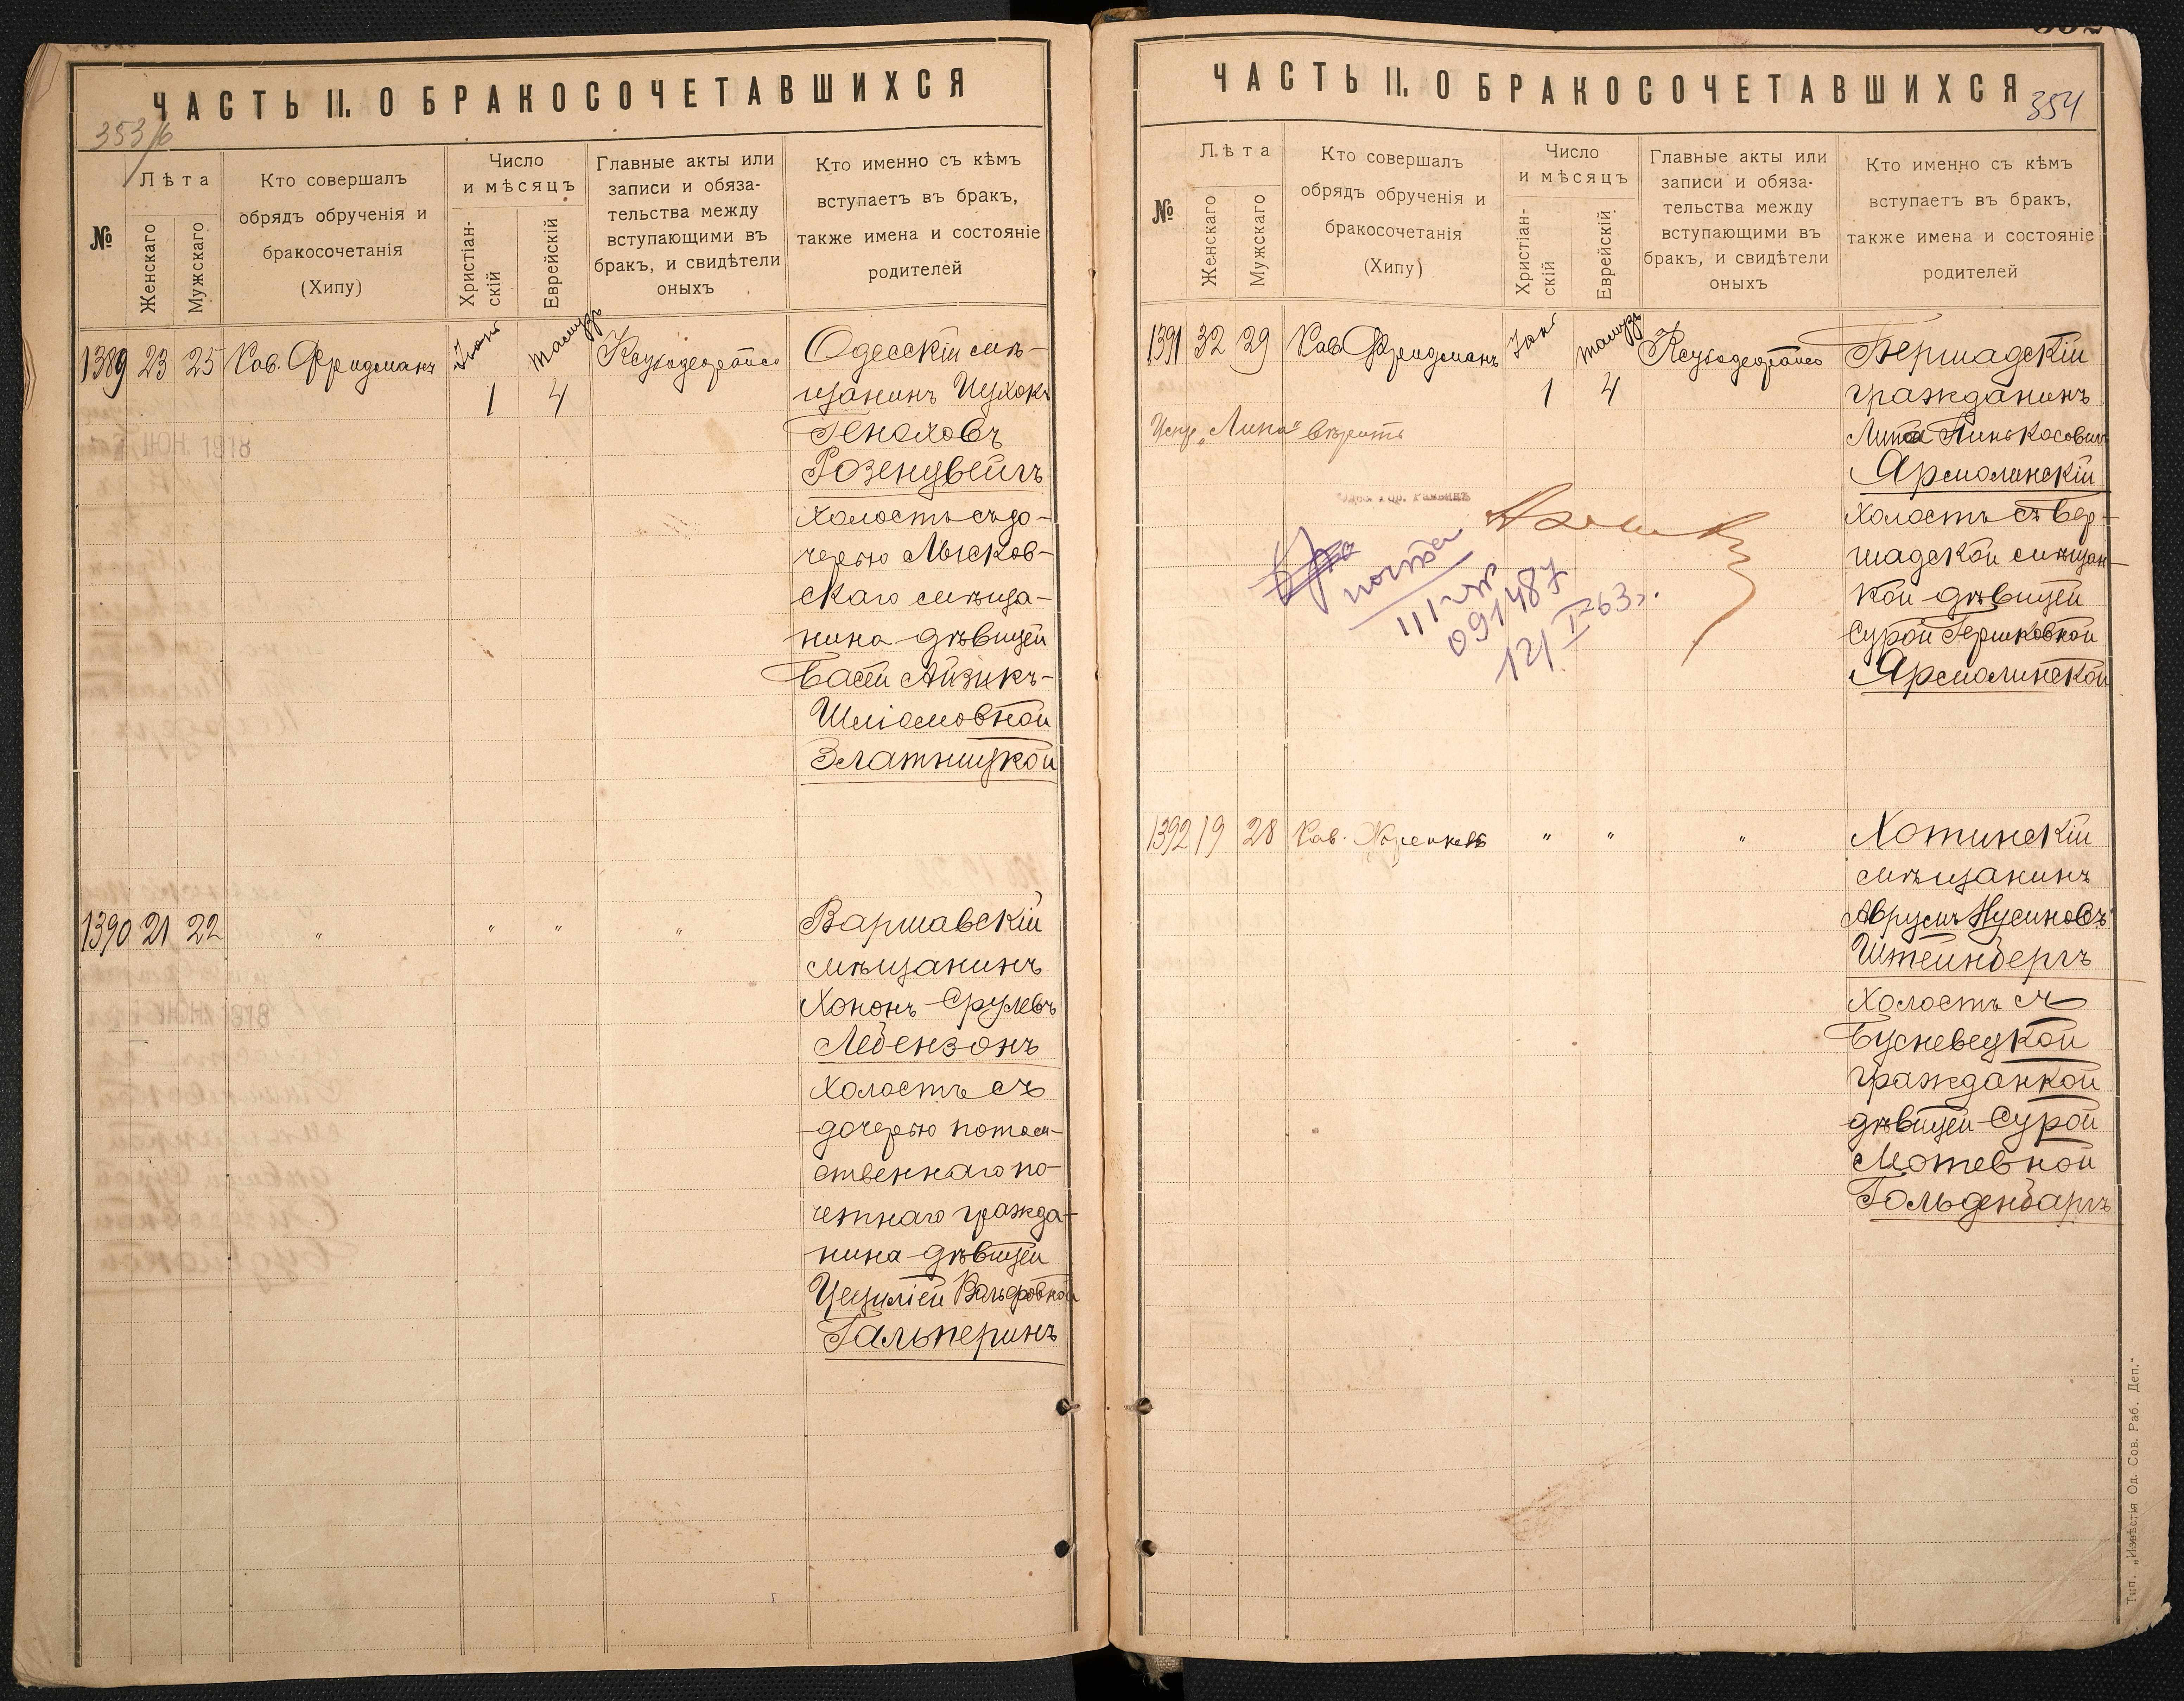 ЧАСТЬ II. О БРАКОСОЧЕТАВШИХСЯ
353/б
№
Лѣта
Женскаго
Мужскаго
Кто совершалъ
обрядъ обрученія и
бракосочетанія
(Хипу)
Число
и мѣсяцъ
Христіан-
скій
Еврейскій
Главные акты или
записи и обяза-
тельства между
вступающими въ
бракъ, и свидѣтели
оныхъ
Кто именно съ кѣмъ
вступаетъ въ бракъ,
также имена и состояніе
родителей
1389 23 25 Каз. Фридманъ
1 4
Одесскій мѣ-
щанинъ Ицхокъ
Геноховъ
Розенцвейгъ
холостъ съ до-
черью Мысков-
скаго мѣща-
нина дѣвицей
Басей Айзикъ-
Шліомовной
Златницкой
1390 21 22 " " " "
Варшавскій
мѣщанинъ
Хононъ Срулевъ
Лебензонъ
холостъ съ
дочерью потом-
ственнаго по-
четнаго гражда-
нина дѣвицей
Цециліей Вольфовной
Гальперинъ
ЧАСТЬ II. О БРАКОСОЧЕТАВШИХСЯ
354
№
Лѣта
Женскаго
Мужскаго
Кто совершалъ
обрядъ обрученія и
бракосочетанія
(Хипу)
Число
и мѣсяцъ
Христіан-
скій
Еврейскій
Главные акты или
записи и обяза-
тельства между
вступающими въ
бракъ, и свидѣтели
оныхъ
Кто именно съ кѣмъ
вступаетъ въ бракъ,
также имена и состояніе
родителей
1391 32 29 Каз. Фридманъ
1 4
Бершадскій
гражданинъ
Липа Пинькосовичъ
Ярмолинскій
холостъ съ Бер-
шадской мѣщан-
кой дѣвицей
Сурой Гершковной
Ярмолинской
Испр. „Липа" вѣрить
почта
091487
12/I 63 г.
1392 19 28 Каз. " " "
Хотинскій
мѣщанинъ
Аврумъ Нусиновъ
Штейнбергъ
холостъ съ
гражданкой
дѣвицей Сурой
Мотевной
Гольденбаргъ
Тип. „Извѣстія Од. Сов. Раб. Деп."